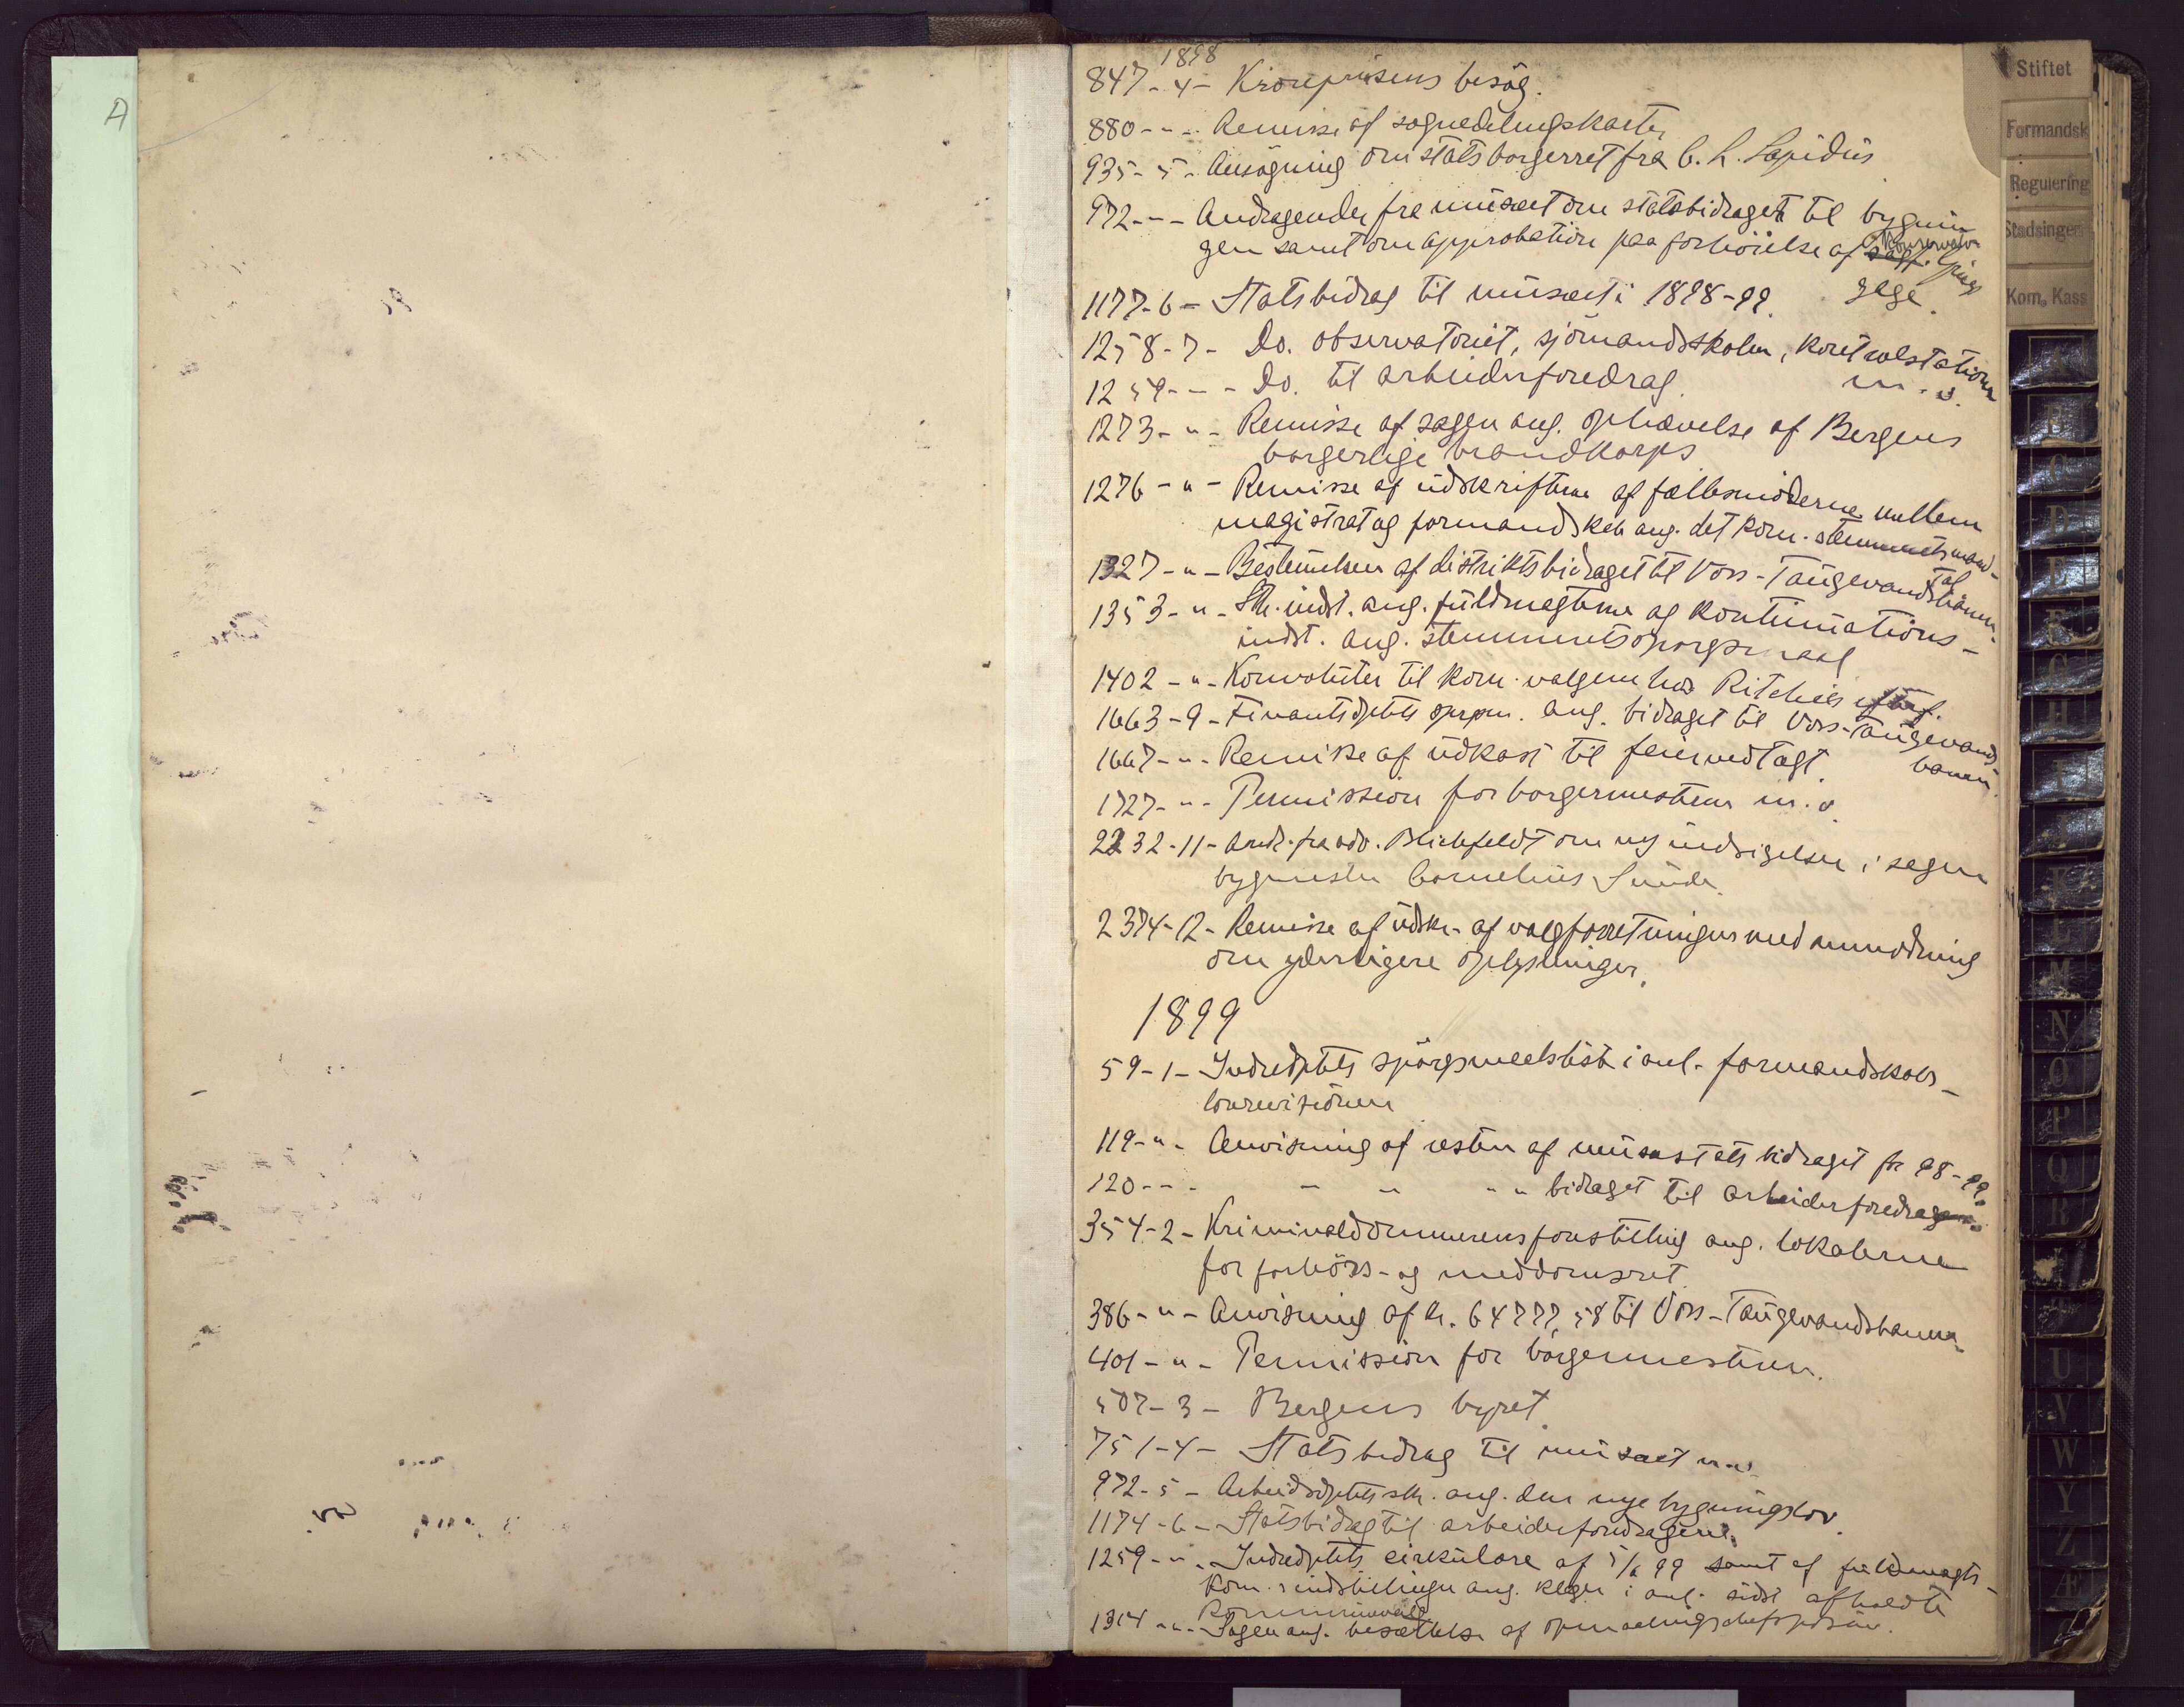 A
1898
847-4- Kronprinsens besög.
880-"- Remisse af sognedelingskarter
935-5- Ansögning om statsborgerret fra C. L. Lapidus
972-"- Andragender fra musæet om statsbidraget til bygnin
gen samt om approbation paa forhöielse af konservator
gage.
1177-6- Statsbidrag til musæet i 1898-99.
1258-7- Do. observatoriet, sjömandsskolen, kontrolstationen
m.v.
1259-"- Do. til arbeiderforedrag.
1273-"- Remisse af sagen ang. ophævelse af Bergens
borgerlige brandkorps
1276-"- Remisse af udskrifterne af fællesmöderne mellem
magistrat og formandskab ang. det kom. stemmeretsmand-
tal
1327-"- Bestemmelsen af distriktsbidraget til Voss-Taugevandsbanen.
1353-"- Skr. indst. ang. fuldmagterne og kontinuations-
indst. ang. stemmeretsspörgsmaal
1402-"- Konvoluter til kom. valgene hos Ritchies eftf.
1663-9- Finantsdptets spgsm. ang. bidraget til Voss-Taugevands
banen.
1667-"- Remisse af udkast til feiervedtægt.
1727-"- Permission for borgermesteren m.v.
2232-11- Andr. fra adv. Blichfeldt om ny indsigelse i sagen
bygmester Cornelius Sunde.
2374-12- Remisse af udskr. af valgforretningen med anmodning
om yderligere oplysninger.
1899
59-1- Indredptets spörgsmaalsliste i anl. formandskabs-
lovrevisionen
119-"- Anvisning af resten af musæets statsbidraget for 98-99.
120-"- - " - " bidraget til arbeiderforedrag
354-2- Kriminaldommerens forestilling ang. lokalerne
for forhörs- og meddomsret.
386-"- Anvisning af kr. 64777,58 til Voss-Taugevandsbanen
401-"- Permission for borgermesteren.
507-3- Bergens byret.
751-4- Statsbidrag til musæet m.v.
972-5- Arbeidsdptets skr. ang. den nye bygningslov.
1174-6- Statsbidrag til arbeiderforedragene.
1259-"- Indredptets cirkulære af 5/6 99 samt af fuldmagts-
kom.s indstillinger ang. klager i anl. sidst afholdte
kommunevalg
1314-"- Sagen ang. besættelse af opmaalingschefsposten.
Stiftet
Formandsk
Regulering
Stadsingen
Kom. Kass
B
C
D
E
F
G
H
I
K
L
M
N
O
P
Q
R
U
V
W
Y
Z
Æ